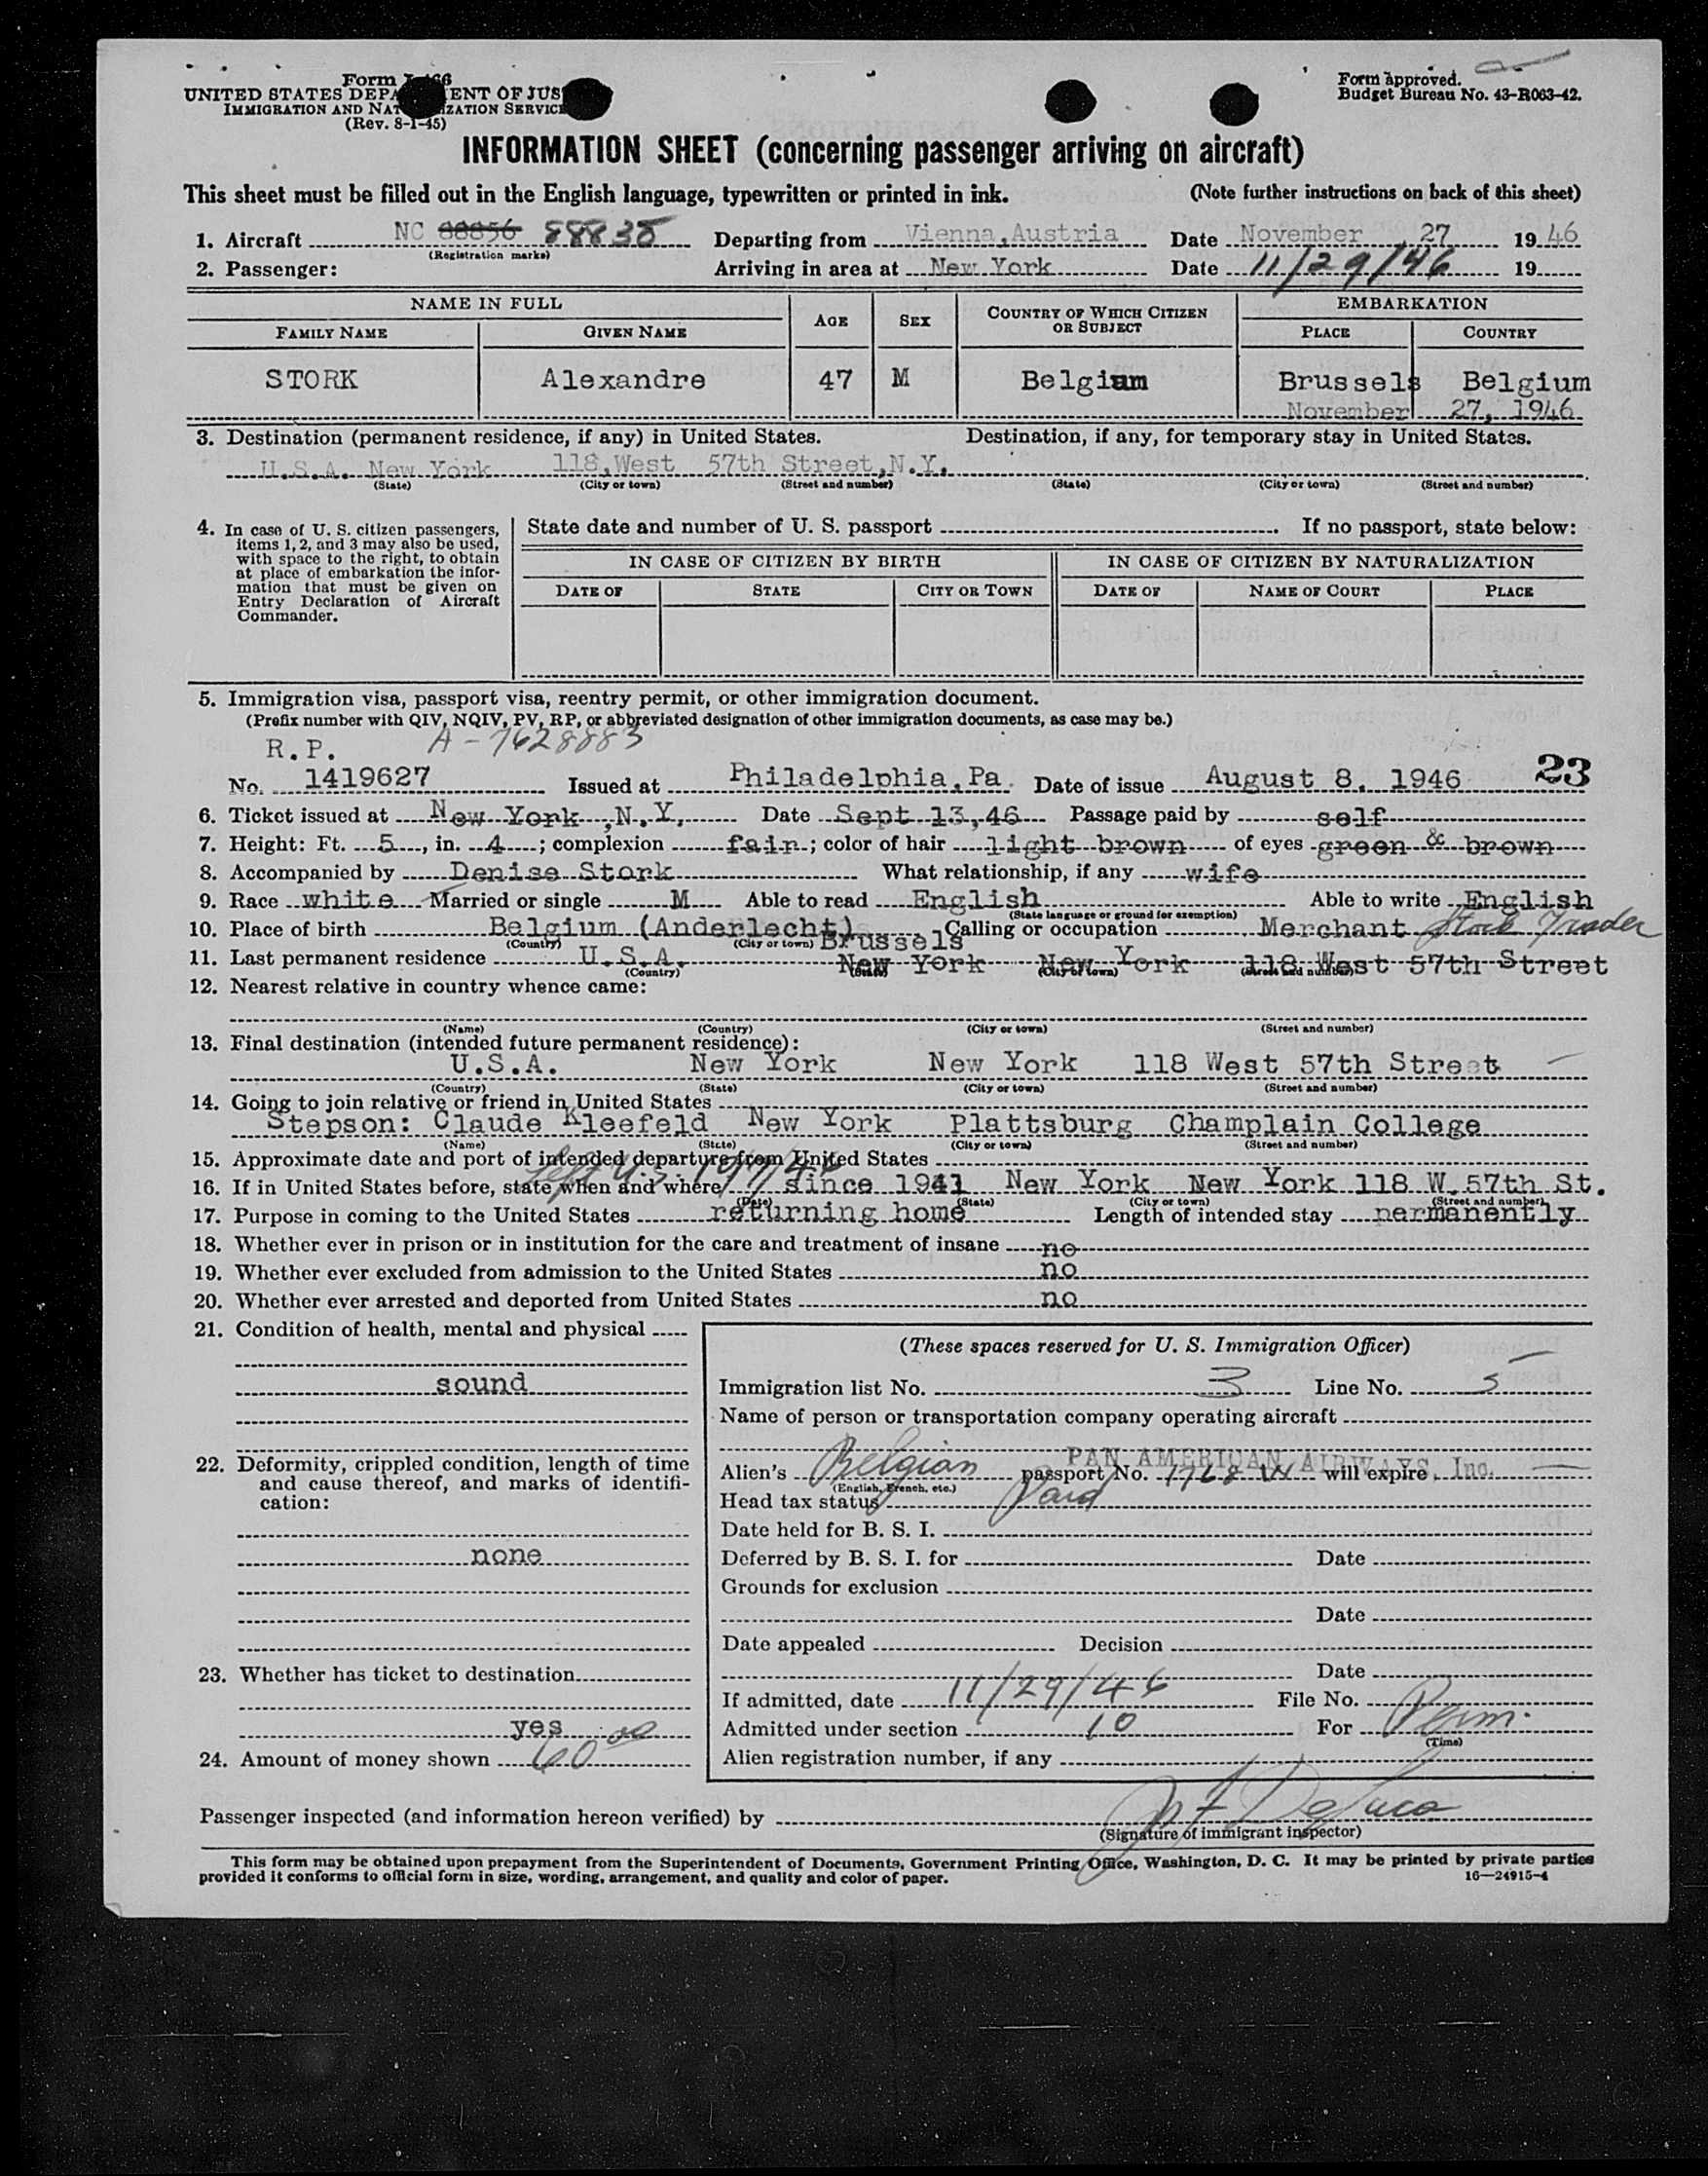 Form I-466
UNITED STATES DEPARTMENT OF JUSTICE
IMMIGRATION AND NATURALIZATION SERVICE
(Rev. 8-1-45)
Form approved.
Budget Bureau No. 43-R063-42.
INFORMATION SHEET (concerning passenger arriving on aircraft)
This sheet must be filled out in the English language, typewritten or printed in ink. (Note further instructions on back of this sheet)
1. Aircraft NC 88856 88838 Departing from Vienna, Austria Date November 27 1946
(Registration marks)
2. Passenger: Arriving in area at New York Date 11/29/46 19
NAME IN FULL AGE SEX COUNTRY OF WHICH CITIZEN OR SUBJECT EMBARKATION
FAMILY NAME GIVEN NAME PLACE COUNTRY
STORK Alexandre 47 M Belgium Brussels Belgium
November 27, 1946
3. Destination (permanent residence, if any) in United States. Destination, if any, for temporary stay in United States.
U.S.A. New York 118, West 57th Street, N.Y.
(State) (City or town) (Street and number) (State) (City or town) (Street and number)
4. In case of U. S. citizen passengers, items 1, 2, and 3 may also be used, with space to the right, to obtain at place of embarkation the information that must be given on Entry Declaration of Aircraft Commander.
State date and number of U. S. passport . If no passport, state below:
IN CASE OF CITIZEN BY BIRTH IN CASE OF CITIZEN BY NATURALIZATION
DATE OF STATE CITY OR TOWN DATE OF NAME OF COURT PLACE
5. Immigration visa, passport visa, reentry permit, or other immigration document.
(Prefix number with QIV, NQIV, PV, RP, or abbreviated designation of other immigration documents, as case may be.)
R.P. A-7628883
No. 1419627 Issued at Philadelphia, Pa. Date of issue August 8, 1946 23
6. Ticket issued at New York, N.Y. Date Sept 13, 46 Passage paid by self
7. Height: Ft. 5, in. 4; complexion fair; color of hair light brown of eyes green & brown
8. Accompanied by Denise Stork What relationship, if any wife
9. Race white Married or single M Able to read English Able to write English
(State language or ground for exemption)
10. Place of birth Belgium (Anderlecht) Brussels Calling or occupation Merchant Stock Trader
(Country) (City or town)
11. Last permanent residence U.S.A. New York New York 118 West 57th Street
(Country) (State) (City or town) (Street and number)
12. Nearest relative in country whence came:
(Name) (Country) (City or town) (Street and number)
13. Final destination (intended future permanent residence):
U.S.A. New York New York 118 West 57th Street
(Country) (State) (City or town) (Street and number)
14. Going to join relative or friend in United States
Stepson: Claude Kleefeld New York Plattsburg Champlain College
(Name) (State) (City or town) (Street and number)
15. Approximate date and port of intended departure from United States
Left U.S.
16. If in United States before, state when and where since 1941 New York New York 118 W. 57th St.
(Date) (State) (City or town) (Street and number)
17. Purpose in coming to the United States returning home Length of intended stay permanently
18. Whether ever in prison or in institution for the care and treatment of insane no
19. Whether ever excluded from admission to the United States no
20. Whether ever arrested and deported from United States no
21. Condition of health, mental and physical
sound
22. Deformity, crippled condition, length of time and cause thereof, and marks of identification:
none
23. Whether has ticket to destination
yes
24. Amount of money shown 60 00
(These spaces reserved for U. S. Immigration Officer)
Immigration list No. 3 Line No. 5
Name of person or transportation company operating aircraft
PAN AMERICAN AIRWAYS, Inc.
Alien's Belgian passport No. 1768 will expire
(English, French, etc.)
Head tax status Paid
Date held for B. S. I.
Deferred by B. S. I. for Date
Grounds for exclusion
Date
Date appealed Decision
Date
If admitted, date 11/29/46 File No.
Admitted under section 10 For Perm.
(Time)
Alien registration number, if any
Passenger inspected (and information hereon verified) by
(Signature of immigrant inspector)
This form may be obtained upon prepayment from the Superintendent of Documents, Government Printing Office, Washington, D. C. It may be printed by private parties
provided it conforms to official form in size, wording, arrangement, and quality and color of paper. 16—24915-4